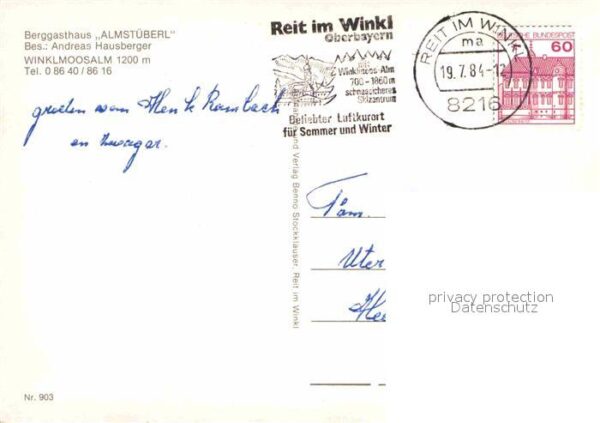 Berggasthaus „ALMSTÜBERL"
Bes.: Andreas Hausberger
WINKLMOOSALM 1200 m
Tel. 0 86 40 / 86 16
groeten van Henk Rombach
en zwager.
Nr. 903
und Verlag Benno Stockklauser, Reit im Winkl
Reit im Winkl
Oberbayern
Winklmoos-Alm
700-1860m
schneesicheres
Skizentrum
Beliebter Luftkurort
für Sommer und Winter
REIT IM WINKL
ma
19.7.84-12
8216
DEUTSCHE BUNDESPOST
60
Fam.
Uter
He
privacy protection
Datenschutz